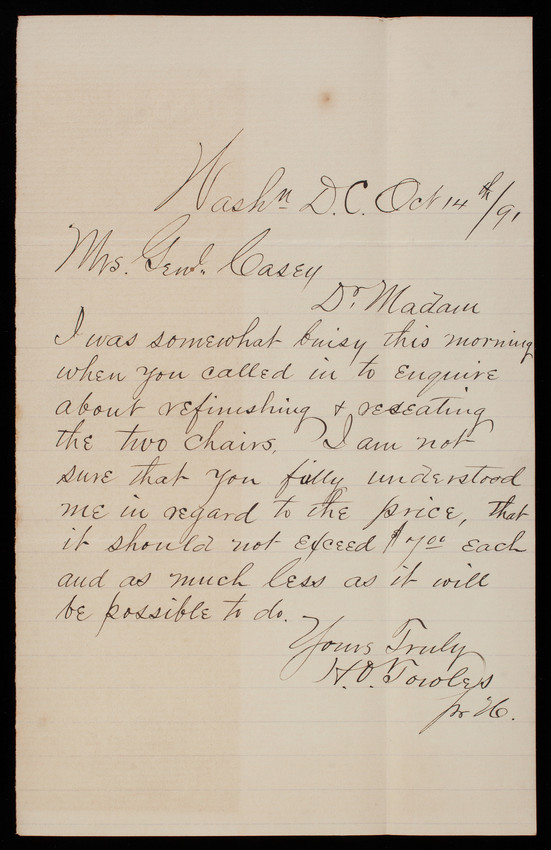 Washn D.C. Oct 14th/91
Mrs. Genl. Casey
Dr. Madam
I was somewhat buisy this morning
when you called in to enquire
about refinishing & reseating
the two chairs. I am not
sure that you fully understood
me in regard to the price, that
it should not exceed $7.00 each
and as much less as it will
be possible to do.
Yours Truly
H.O. Towles
pr